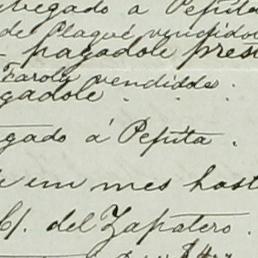 tregado á Pepita
de Plaqué vendidos
pagadole pres
Farola vendidda
gadole
gado á Pepita.
em mes hast
C/. del Zapatero.